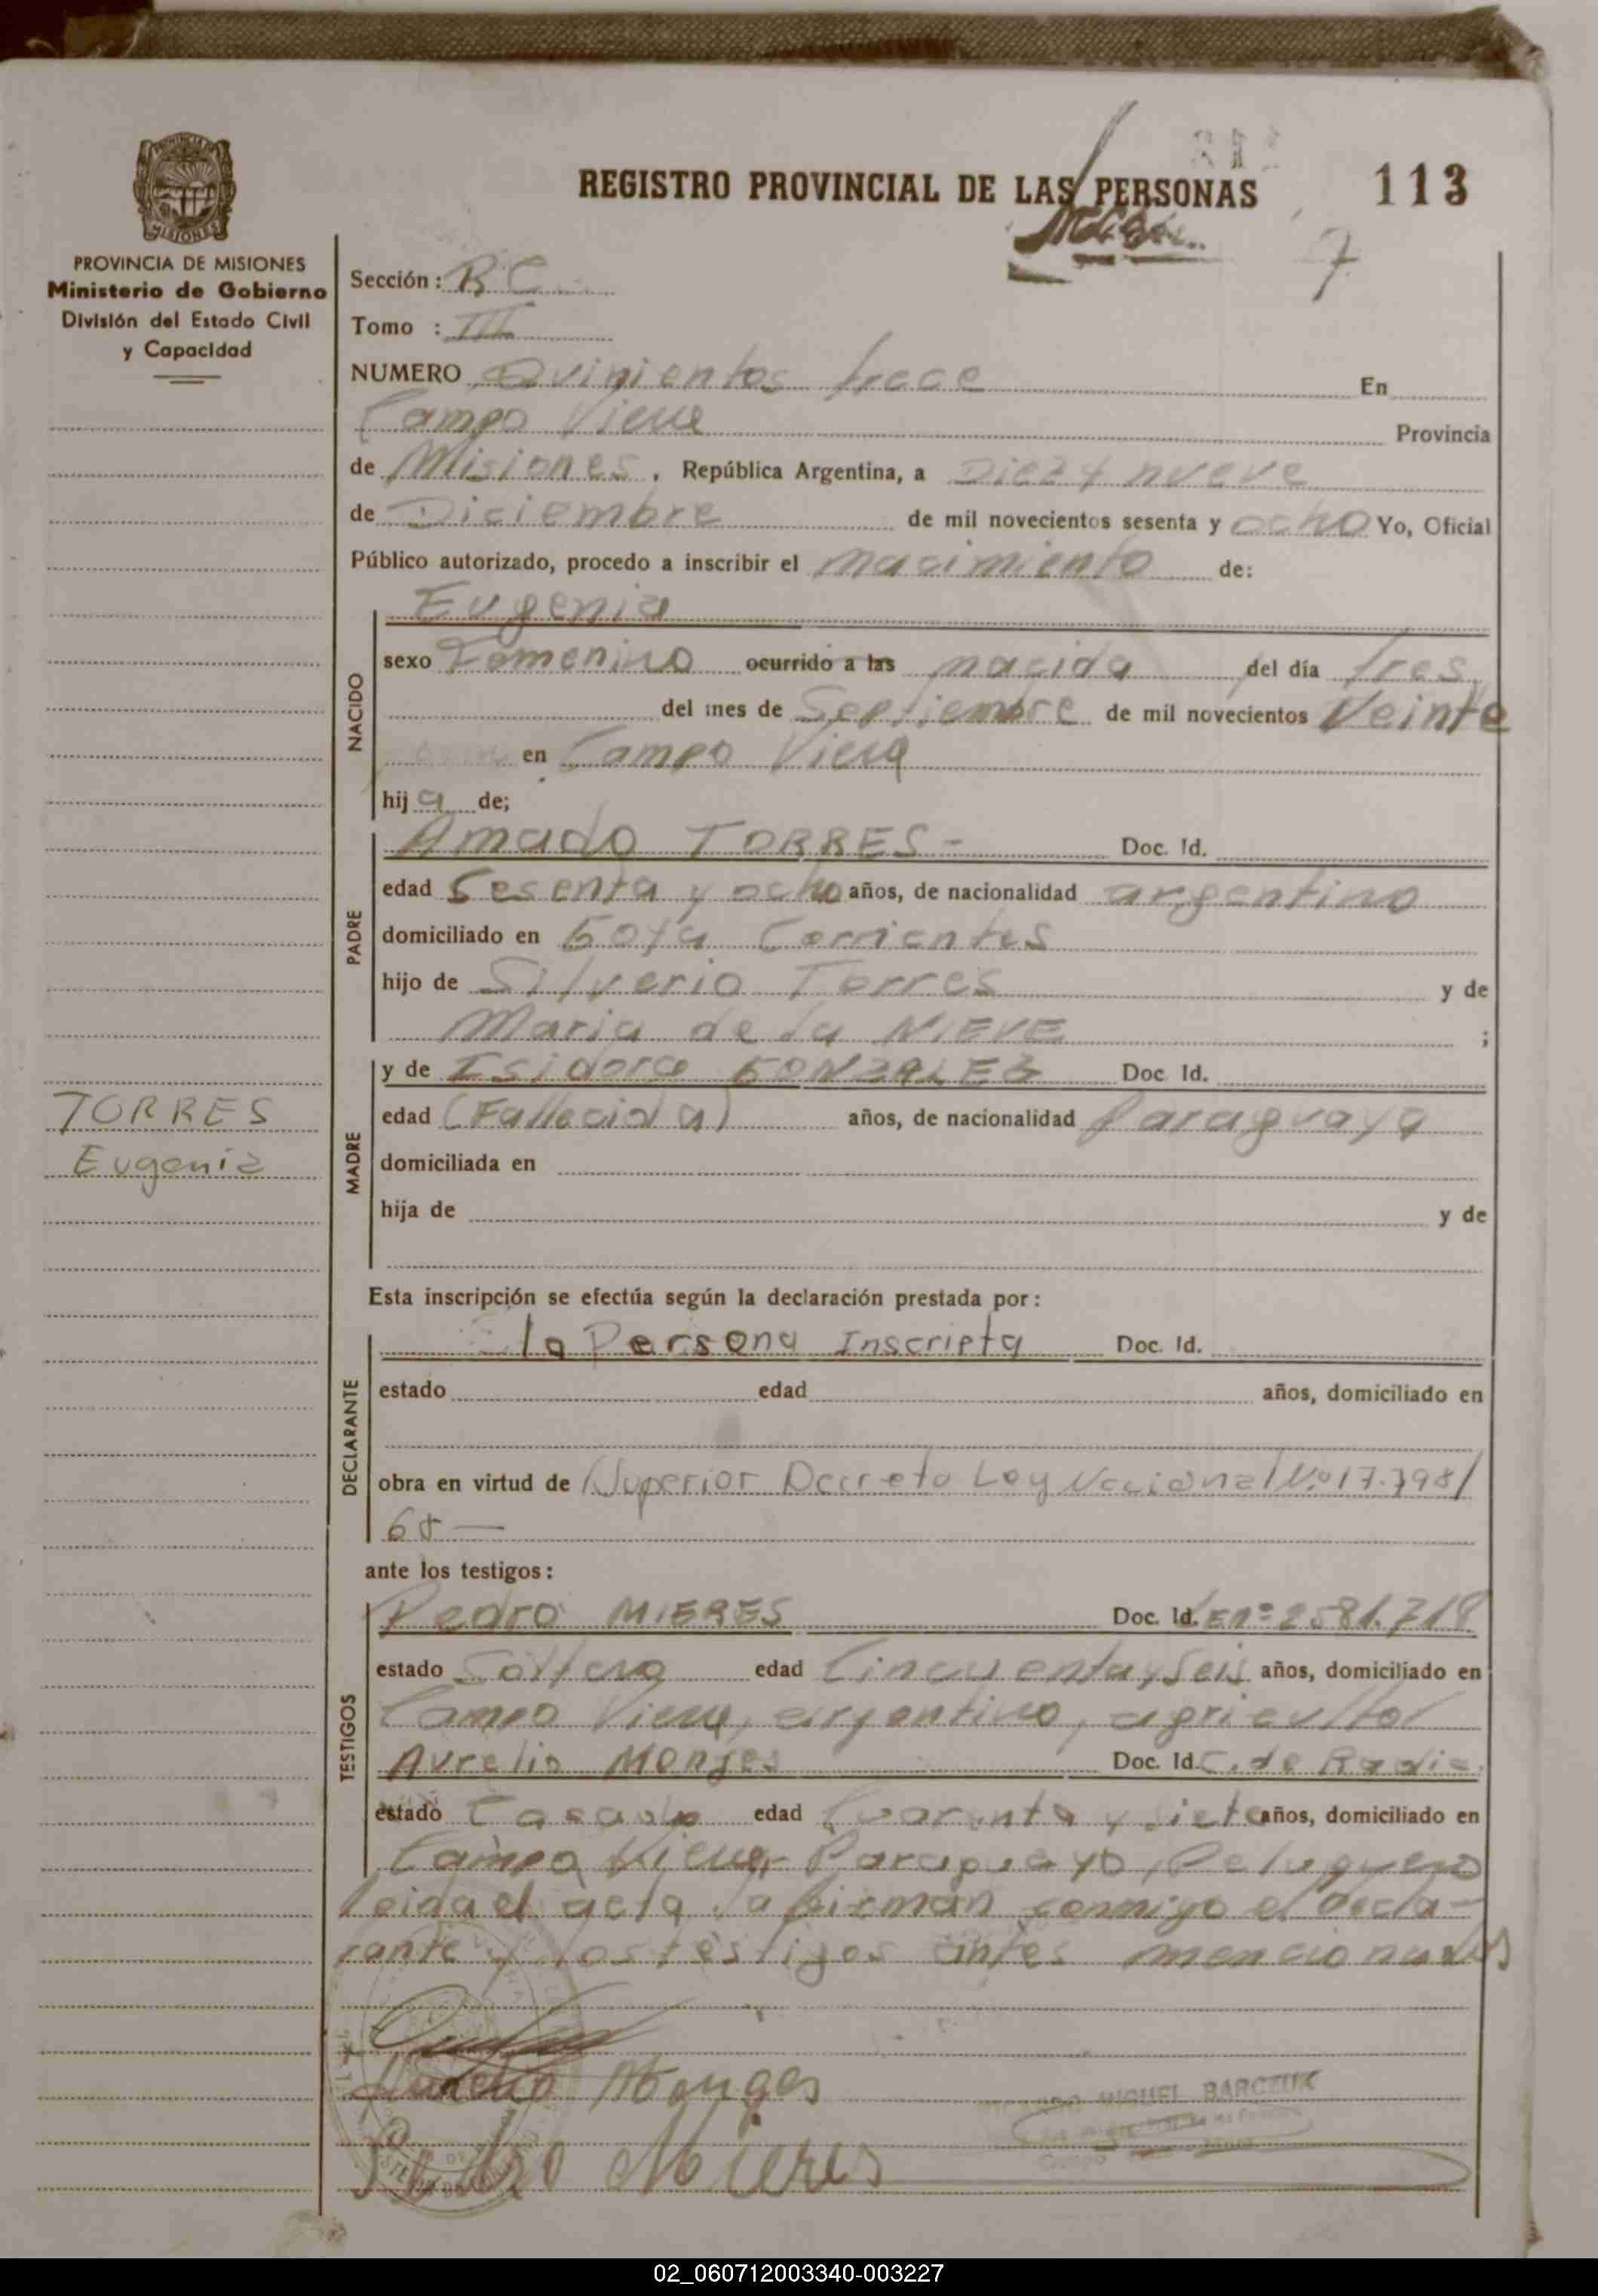 REGISTRO PROVINCIAL DE LAS PERSONAS 113
7
PROVINCIA DE MISIONES
Ministerio de Gobierno
División del Estado Civil
y Capacidad
Sección: BC
Tomo : III
NUMERO Quinientos trece En
Campo Viera Provincia
de Misiones, República Argentina, a Diez y nueve
de Diciembre de mil novecientos sesenta y ocho Yo, Oficial
Público autorizado, procedo a inscribir el nacimiento de:
Eugenia
NACIDO
sexo Femenino ocurrido a las nacida del día tres
del mes de Septiembre de mil novecientos Veinte
en Campo Viera
hija de;
Amado TORRES - Doc. Id.
PADRE
edad Sesenta y ocho años, de nacionalidad argentino
domiciliado en Goya Corrientes
hijo de Silverio Torres y de
Maria de la NIEVE ;
y de Isidora GONZALEZ Doc. Id.
TORRES
Eugenia
MADRE
edad (Fallecida) años, de nacionalidad Paraguaya
domiciliada en
hija de y de
Esta inscripción se efectúa según la declaración prestada por:
la Persona Inscripta Doc. Id.
DECLARANTE
estado edad años, domiciliado en
obra en virtud de Superior Decreto Ley Nacional Nº 17.798/
68 —
ante los testigos:
Pedro MIERES Doc. Id. LE Nº 2581.718
TESTIGOS
estado Soltero edad Cincuenta y Seis años, domiciliado en
Campo Viera, argentino, agricultor
Aurelio Monges Doc. Id. C. de Radic.
estado Casado edad Cuarenta y siete años, domiciliado en
Campo Viera, Paraguayo, Peluquero
leida el acta la firman conmigo el decla-
rante y los testigos antes mencionados
Aurelio Monges
MIGUEL BARCZUK
Pedro Mieres
02_060712003340-003227